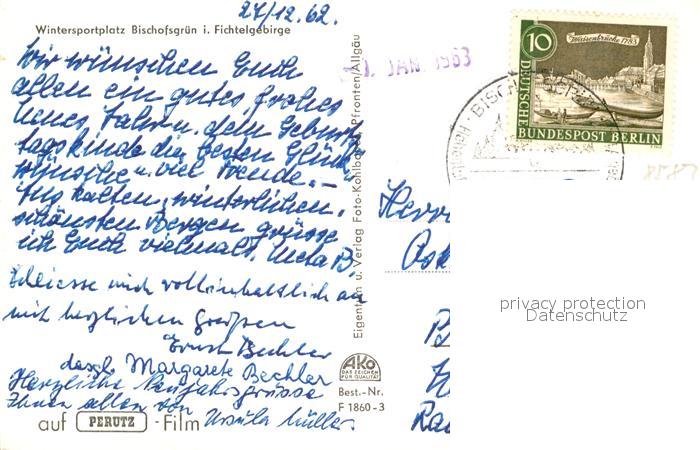 27/12.62.
Wintersportplatz Bischofsgrün i. Fichtelgebirge
Wir wünschen Euch
allen ein gutes frohes
neues Jahr u. dem Geburts
tagskinde die besten Glück
wünsche u. viel Freude. –
Aus kalten, winterlichen,
schönsten Bergen grüsse
ich Euch vielmals, Meta B.
Schliesse mich vollinhaltlich an
mit herzlichen Grüßen
Ernst Bechler
desgl. Margarete Bechler
Herzliche Neujahrsgrüsse
Ihnen allen von
Ursula Müller
auf PERUTZ - Film
Eigentum u. Verlag Foto-Kohlbauer, Pfronten/Allgäu
AKO
DAS ZEICHEN
FÜR QUALITÄT
Best.-Nr.
F 1860-3
JAN. 1963
BISCH
10
Waisenbrücke 1783
DEUTSCHE
BUNDESPOST BERLIN
8587
Herrn
Osk
privacy protection
Datenschutz